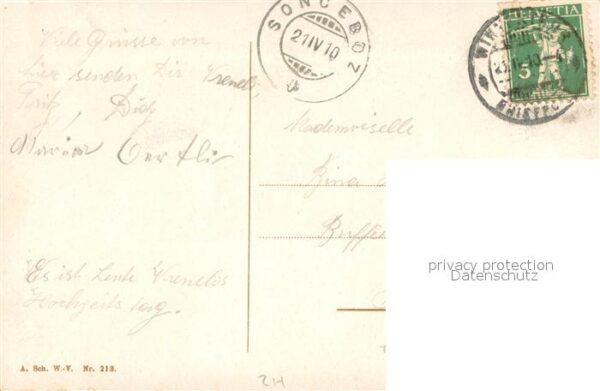 Viele Grüsse von
hier senden Dir Vreneli,
Fritz, Dich
Maria Oertli
Es ist heute Vrenelis
Hochzeits tag.
A. Sch. W.-V. Nr. 213.
SONCEBOZ
21 IV 10
HELVETIA
5
Mademoiselle
privacy protection
Datenschutz
2H